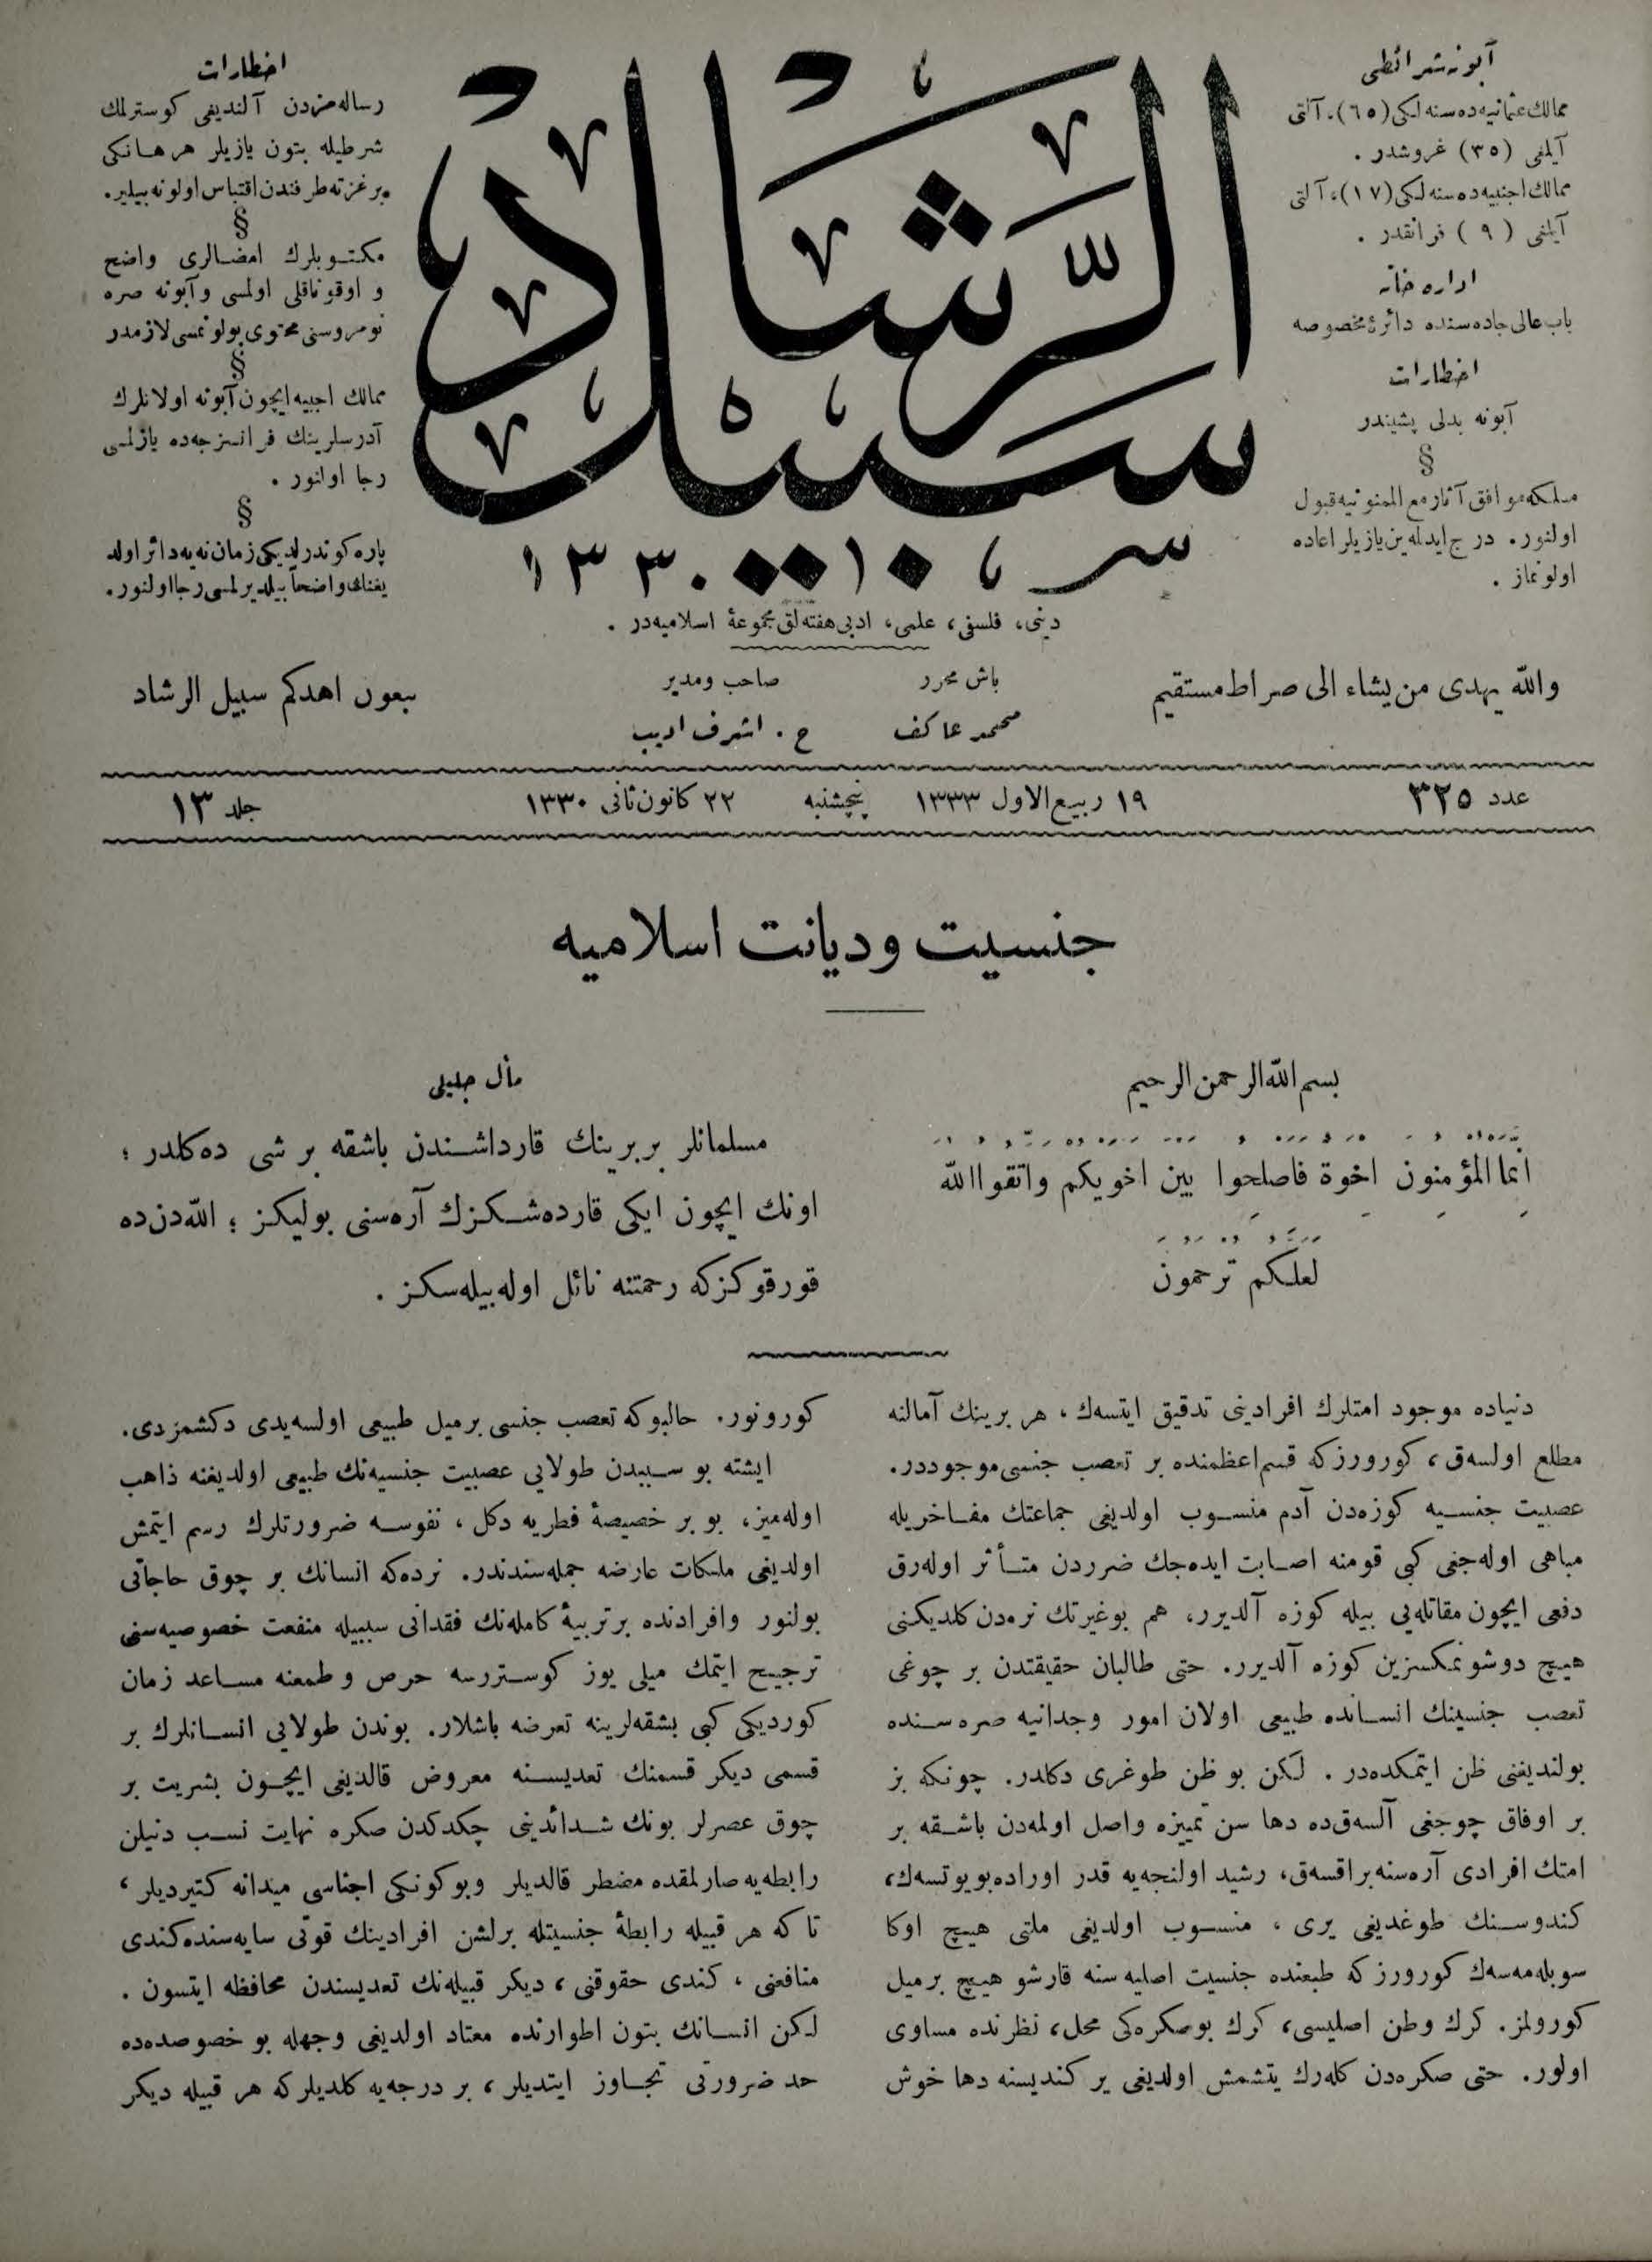 آبونه شرائطی
ممالك عثمانیه‌ده سنه‌لكی (٦٥)، آلتی
آیلغی (٣٥) غروشدر .
ممالك اجنبیه‌ده سنه‌لكی (١٧)، آلتی
آیلغی (٩) فرانقدر .
اداره خانه
باب عالی جاده‌سنده دائرۀ مخصوصه
اخطارات
آبونه بدلی پشیندر
§
مسلكه موافق آثار مع الممنونیه قبول
اولنور. درج ایدلمه‌ین یازیلر اعاده
اولونماز .
سبيل الرشاد
سر ١٣٣٠
اخطارات
رساله‌مزدن آلندیغی كوسترلمك
شرطیله بتون یازیلر هر هانكی
بر غزته طرفندن اقتباس اولونه‌بیلیر.
§
مكتوبلرك امضالری واضح
و اوقوناقلی اولمسی و آبونه صره
نومروسنی محتوی بولونمسی لازمدر
§
ممالك اجنبیه ایچون آبونه اولانلرك
آدرسلرینك فرانسزجه‌ده یازلمسی
رجا اولنور .
§
پاره كوندرلدیكی زمان نه‌یه دائر اولد
یغنك واضحاً بیلدیرلمسی رجا اولنور.
دینی، فلسفی، علمی، ادبی هفته‌لق مجموعۀ اسلامیه‌در .
والله یهدی من یشاء الی صراط مستقیم
باش محرر
محمد عاكف
صاحب ومدیر
ح . اشرف ادیب
اتبعون اهدكم سبیل الرشاد
عدد ٣٢٥
١٩ ربیع‌الاول ١٣٣٣ پنجشنبه ٢٢ كانون ثانی ١٣٣٠
جلد ١٣
جنسیت ودیانت اسلامیه
بسم الله الرحمن الرحیم
اِنَّمَا الْمُؤْمِنُونَ اِخْوَةٌ فَاَصْلِحُوا بَيْنَ اَخَوَيْكُمْ وَاتَّقُوا اللهَ
لَعَلَّكُمْ تُرْحَمُونَ
مأل جلیلی
مسلمانلر بربرینك قارداشندن باشقه بر شی ده‌كلدر ؛
اونك ایچون ایكی قارده‌شكزك آره‌سنی بولیكز ؛ الله‌دن‌ده
قورقوكزكه رحمتنه نائل اوله‌بیله‌سكز .
دنیاده موجود امتلرك افرادینی تدقیق ایتسه‌ك، هر برینك آمالنه
مطلع اولسه‌ق، كورورزكه قسم اعظمنده بر تعصب جنسی موجوددر.
عصبیت جنسیه كوزه‌دن آدم منسوب اولدیغی جماعتك مفاخریله
مباهی اوله‌جغی كبی قومنه اصابت ایده‌جك ضرردن متأثر اوله‌رق
دفعی ایچون مقاتله‌یی بیله كوزه آلدیرر، هم بوغیرتك نره‌دن كلدیكنی
هیچ دوشونمكسزین كوزه آلدیرر. حتی طالبان حقیقتدن بر چوغی
تعصب جنسینك انسانده طبیعی اولان امور وجدانیه صره‌سنده
بولندیغنی ظن ایتمكده‌در . لكن بو ظن طوغری دكلدر. چونكه بز
بر اوفاق چوجغی آلسه‌ق‌ده دها سن تمییزه واصل اولمه‌دن باشقه بر
امتك افرادی آره‌سنه براقسه‌ق، رشید اولنجه‌یه قدر اوراده‌بویوتسه‌ك،
كندوسنك طوغدیغی یری ، منسوب اولدیغی ملتی هیچ اوكا
سویلمه‌سه‌ك كورورز كه طبعنده جنسیت اصلیه سنه قارشو هیچ بر میل
كورولمز. كرك وطن اصلیسی، كرك بوصكره‌كی محل، نظرنده مساوی
اولور. حتی صكره‌دن كله‌رك یتشمش اولدیغی یر كندیسنه دها خوش
كورونور. حالبوكه تعصب جنسی برمیل طبیعی اولسه‌یدی دكشمزدی.
ایشته بو سببدن طولایی عصبیت جنسیه‌نك طبیعی اولدیغنه ذاهب
اوله‌میز، بو بر خصیصۀ فطریه دكل ، نفوسه ضرورتلرك رسم ایتمش
اولدیغی ملكات عارضه جمله‌سندندر. نرده‌كه انسانك بر چوق حاجاتی
بولنور وافرادنده بر تربیۀ كامله‌نك فقدانی سببیله منفعت خصوصیه‌سنی
ترجیح ایتمك میلی یوز كوستررسه حرص و طمعنه مساعد زمان
كوردیكی كبی بشقه‌لرینه تعرضه باشلار. بوندن طولایی انسانلرك بر
قسمی دیكر قسمنك تعدیسنه معروض قالدیغی ایچون بشریت بر
چوق عصرلر بونك شدائدینی چكدكدن صكره نهایت نسب دنیلن
رابطه‌یه صارلمقده مضطر قالدیلر وبوكونكی اجناسی میدانه كتیردیلر،
تا كه هر قبیله رابطۀ جنسیتله برلشن افرادینك قوتی سایه‌سنده كندی
منافعنی ، كندی حقوقنی ، دیكر قبیله‌نك تعدیسندن محافظه ایتسون .
لكن انسانك بتون اطوارنده معتاد اولدیغی وجهله بو خصوصده‌ده
حد ضرورتی تجاوز ایتدیلر ، بر درجه‌یه كلدیلركه هر قبیله دیكر